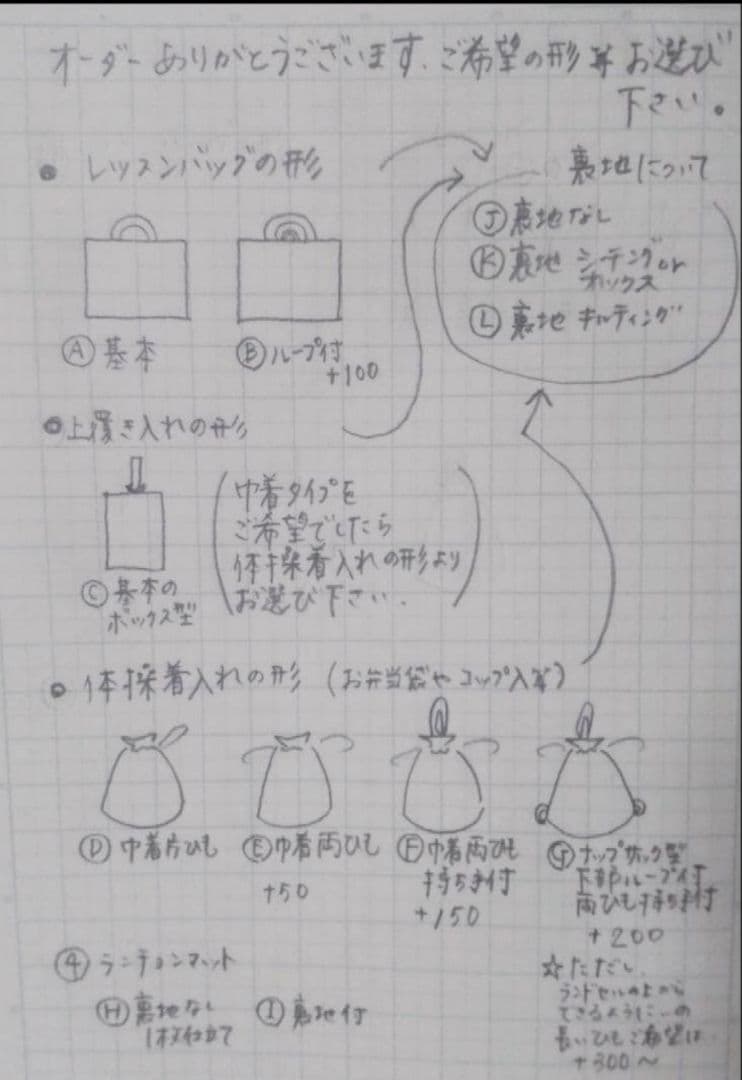 オーダーありがとうございます、ご希望の形等お選び
下さい。
● レッスンバッグの形
Ⓐ 基本
Ⓑ ループ付
+100
裏地について
Ⓙ 裏地なし
Ⓚ 裏地 シーチングor
オックス
Ⓛ 裏地 キルティング
● 上履き入れの形
Ⓒ 基本の
ボックス型
(巾着タイプを
ご希望でしたら
体操着入れの形より
お選び下さい.)
● 体操着入れの形 (お弁当袋やコップ入等)
Ⓓ 巾着片ひも
Ⓔ 巾着両ひも
+50
Ⓕ 巾着両ひも
持ち手付
+150
Ⓖ ナップサック型
下部ループ付
両ひも持ち手付
+200
☆ただし、
ランドセルの上から
できるように…の
長いひもご希望は
+300〜
④ ランチョンマット
Ⓗ 裏地なし
1枚仕立て
Ⓘ 裏地付